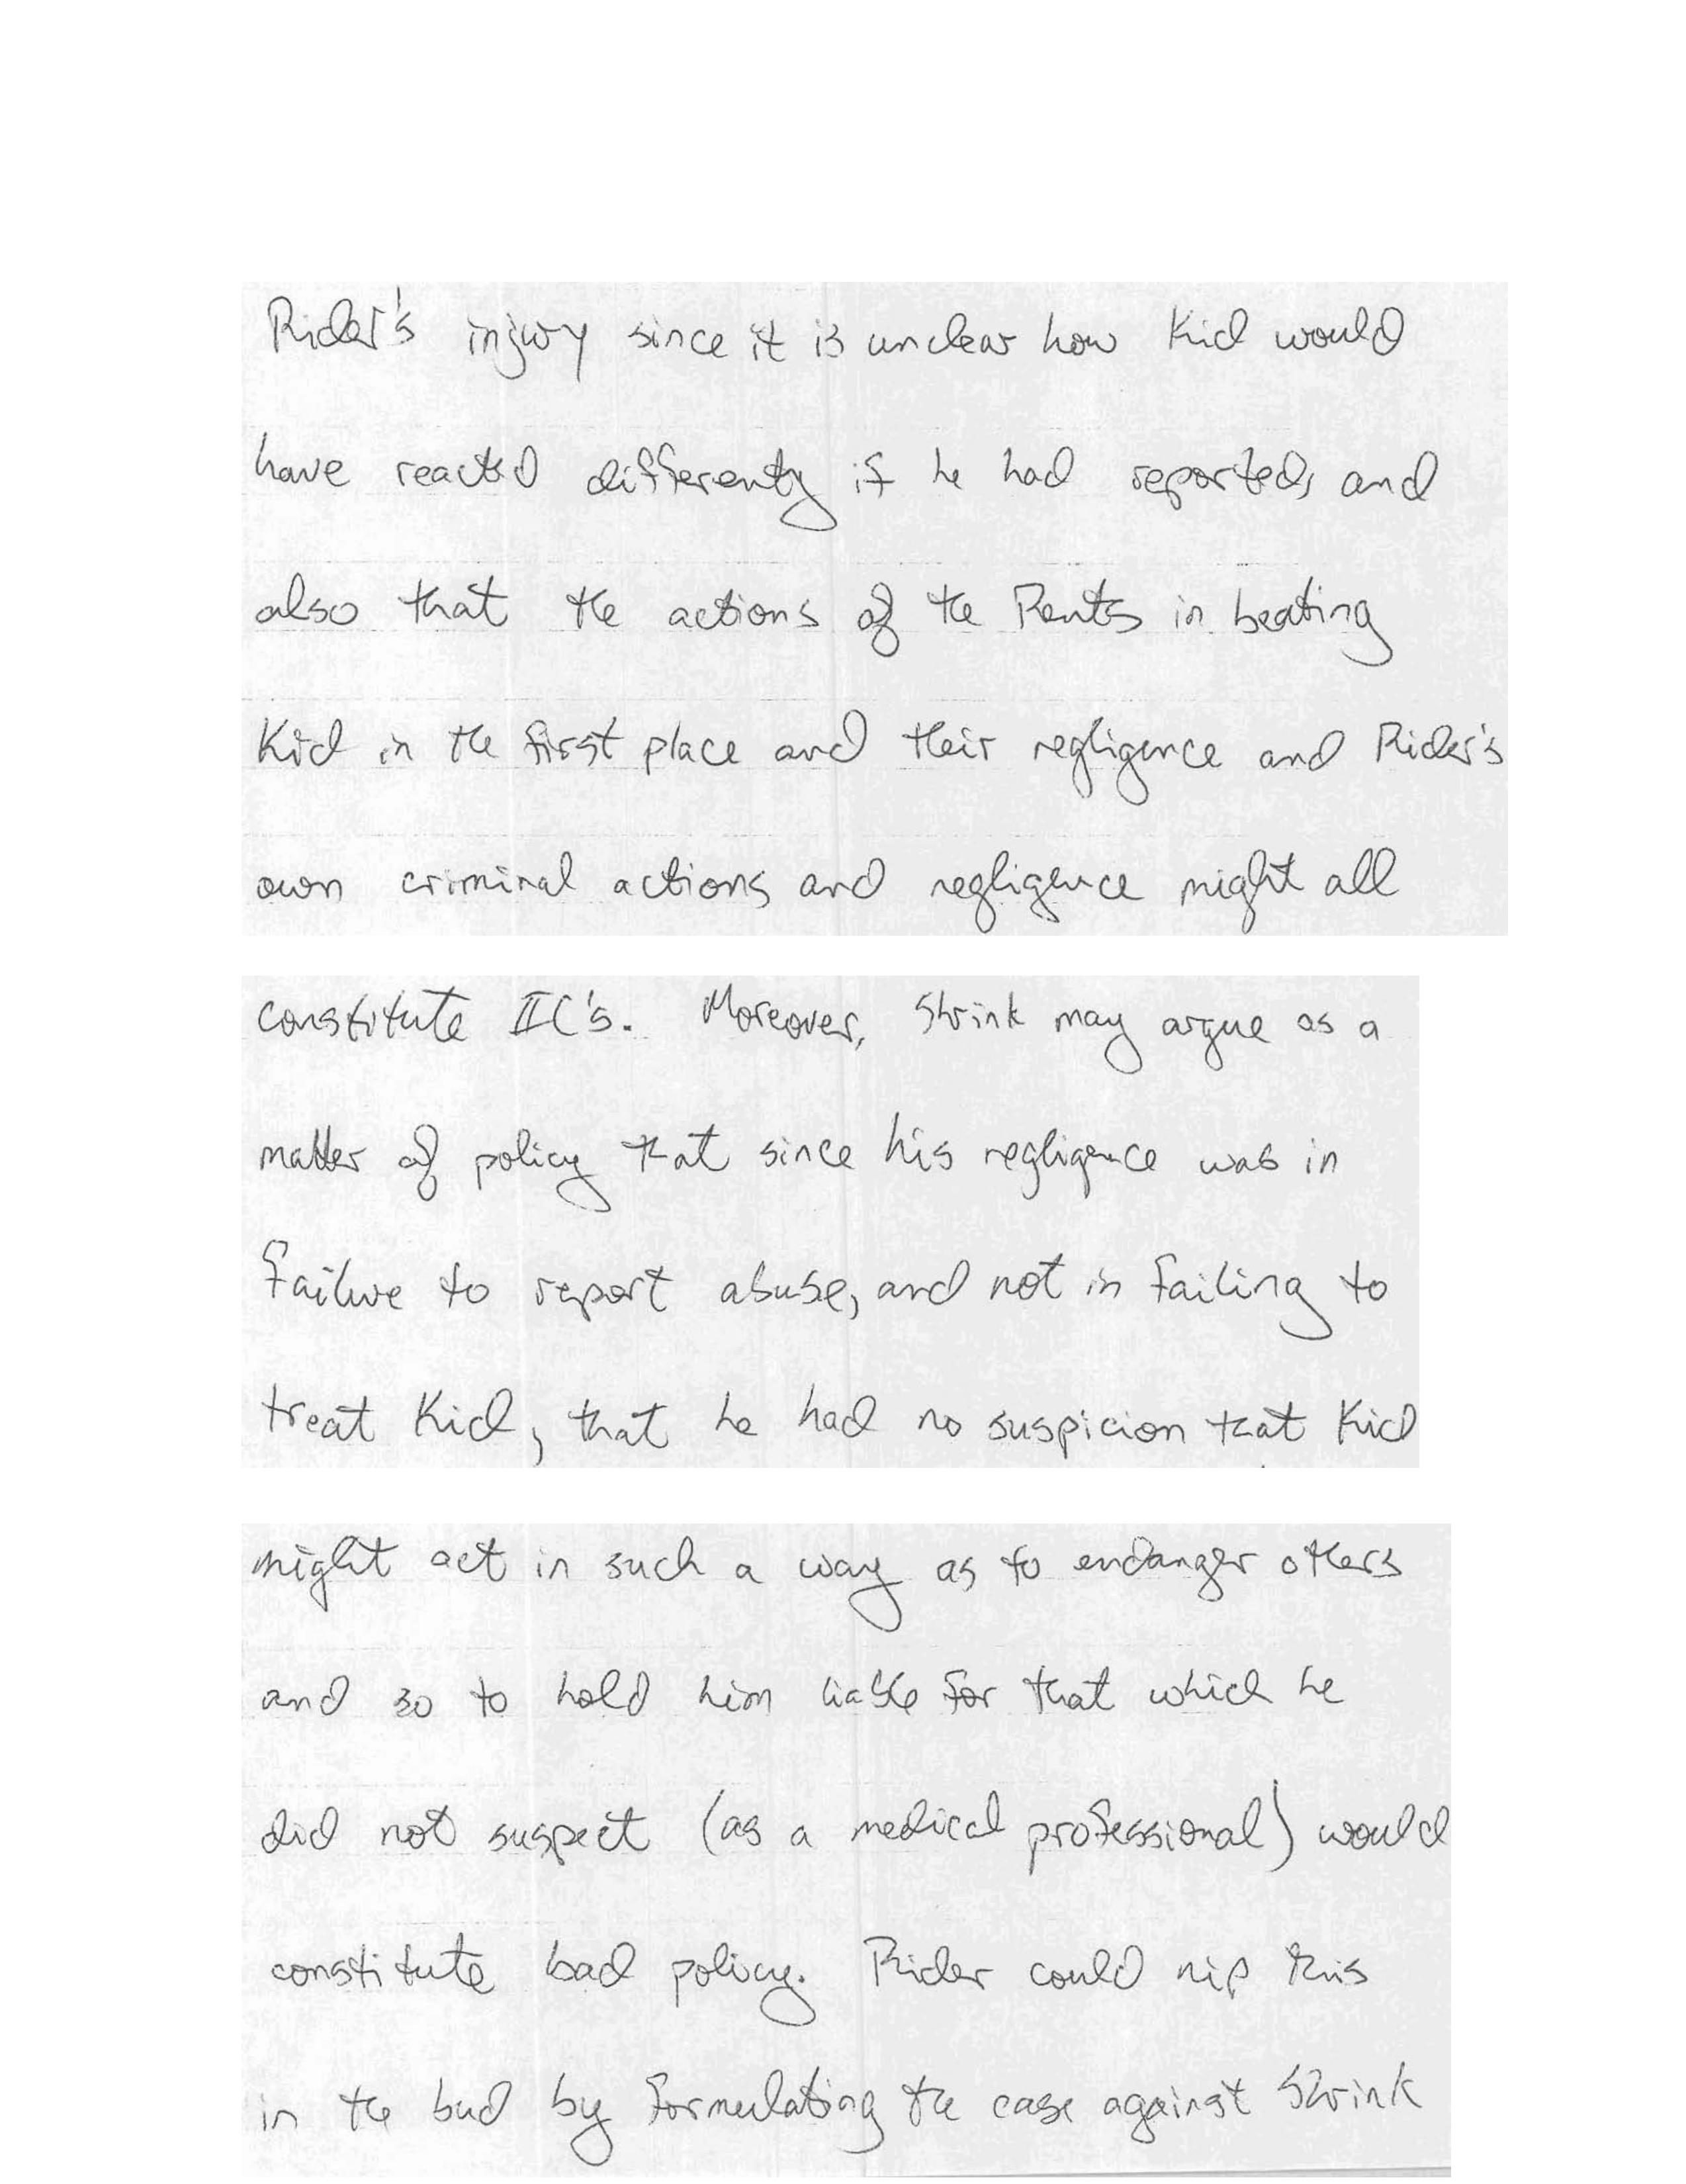 Rider's injury since it is unclear how Kid would
have reacted differently if he had reported, and
also that the actions of the Rents in beating
Kid in the first place and their negligence and Rider's
own criminal actions and negligence might all
constitute IIC's. Moreover, Shrink may argue as a
matter of policy that since his negligence was in
failure to report abuse, and not in failing to
treat Kid, that he had no suspicion that Kid
might act in such a way as to endanger others
and so to hold him liable for that which he
did not suspect (as a medical professional) would
constitute bad policy. Rider could nip this
in the bud by formulating the case against Shrink